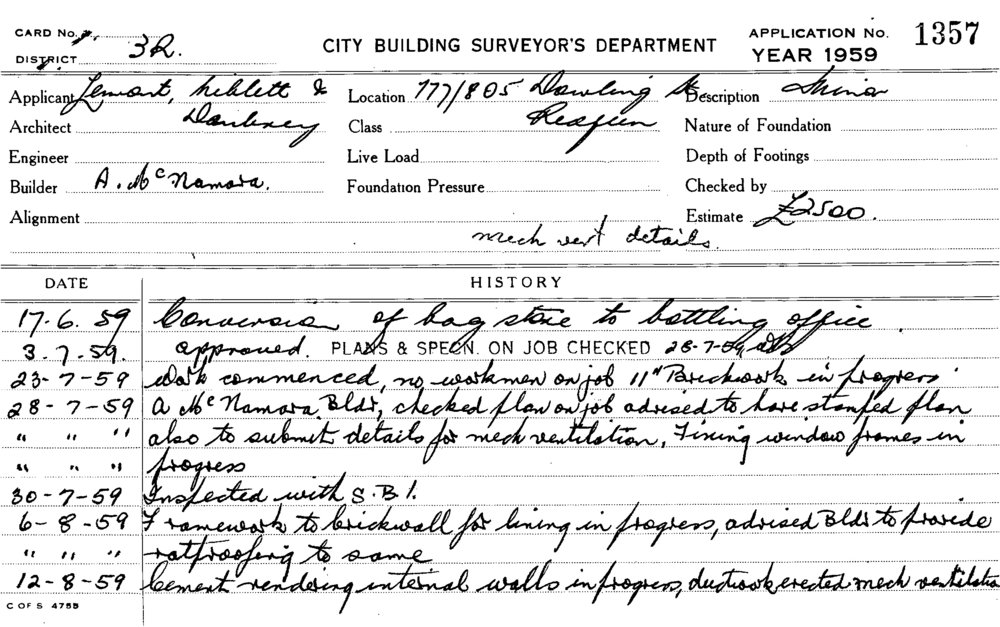 CARD No.
DISTRICT 3R.
CITY BUILDING SURVEYOR'S DEPARTMENT
APPLICATION No. 1357
YEAR 1959
Applicant Lemont, Niblett &
Daubney
Architect
Engineer
Builder A. McNamara.
Alignment
Location 777/805 Dowling St
Redfern
Class
Live Load
Foundation Pressure
Description Minor
Nature of Foundation
Depth of Footings
Checked by
Estimate £2500.
mech vent details.
DATE HISTORY
17.6.59 Conversion of bag store to bottling office.
3.7.59. approved. PLANS & SPECN. ON JOB CHECKED 28-7-59
23-7-59 Work commenced, no workmen on job 11" Brickwork in progress
28-7-59 A McNamara Bldr, checked plan on job advised to have stamped plan
" " " also to submit details for mech ventilation, Fixing window frames in
" " " progress
30-7-59 Inspected with S.B.I.
6-8-59 Framework to brickwall for lining in progress, advised Bldr to provide
" " " ratproofing to same
12-8-59 Cement rendering internal walls in progress, ductwork erected mech ventilation
C OF S 4755